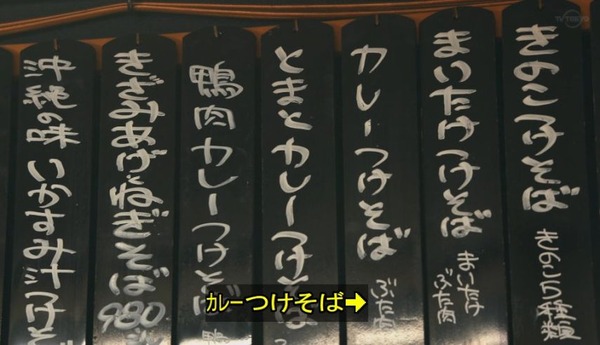 きのこつけそば きのこ5種類
まいたけつけそば まいたけ ぶた肉
カレーつけそば ぶた肉
とまとカレーつけそば
鴨肉カレーつけそば
きざみあげねぎそば 980
沖縄の味 いかすみ汁つけそ
カレーつけそば➡
TV TOKYO